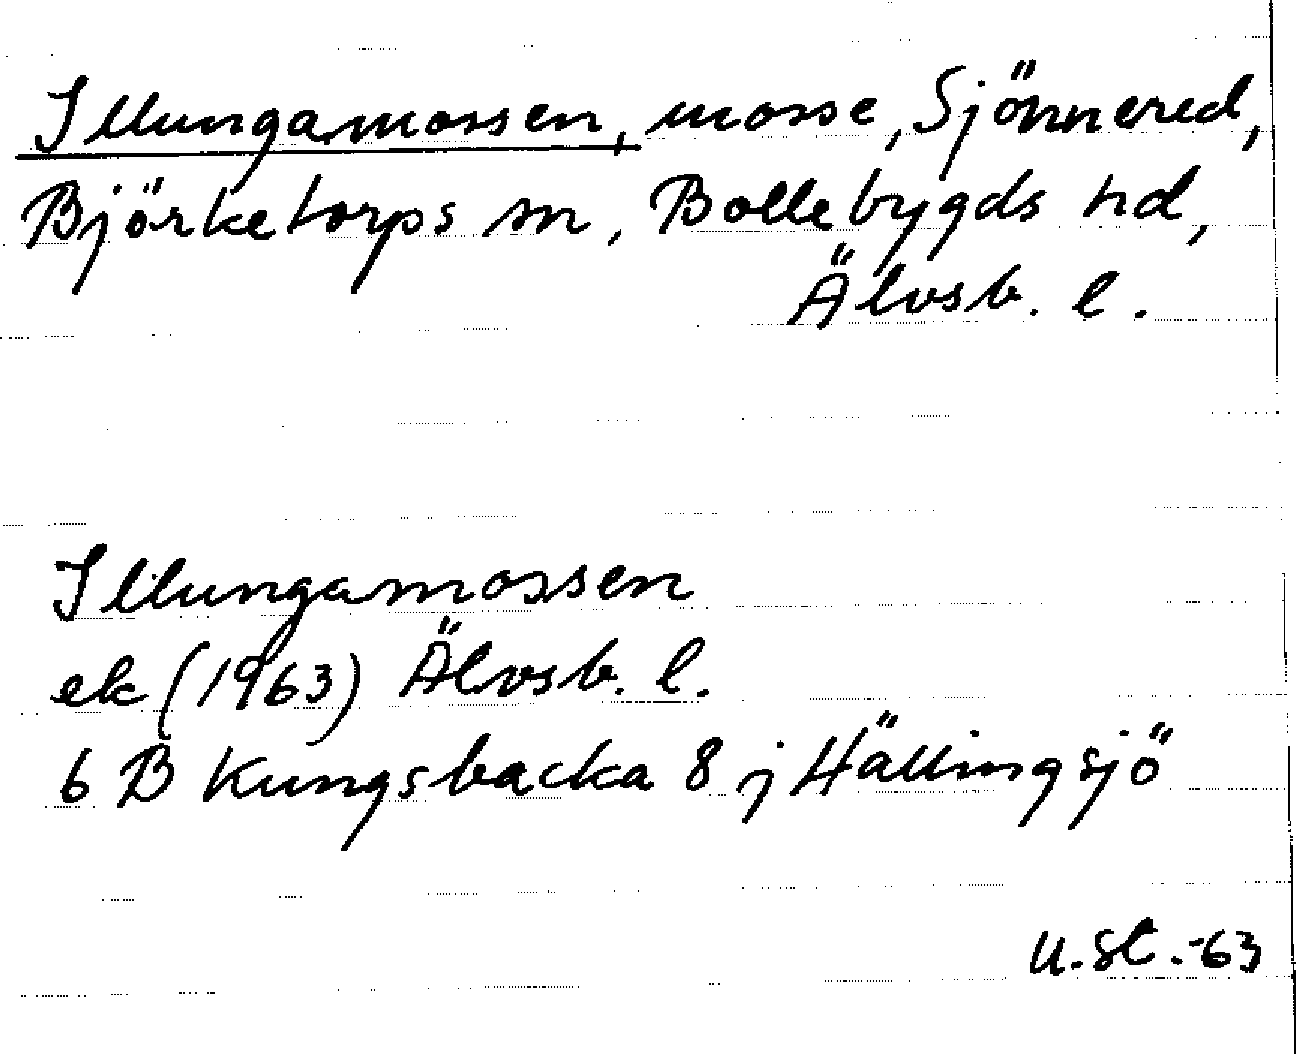 Illungamossen, mosse, Sjönnered,
Björketorps sn, Bollebygds hd,
Älvsb. l.
Illungamossen
ek (1963) Älvsb. l.
6 B Kungsbacka 8 j Hällingsjö
U.Sl.-63